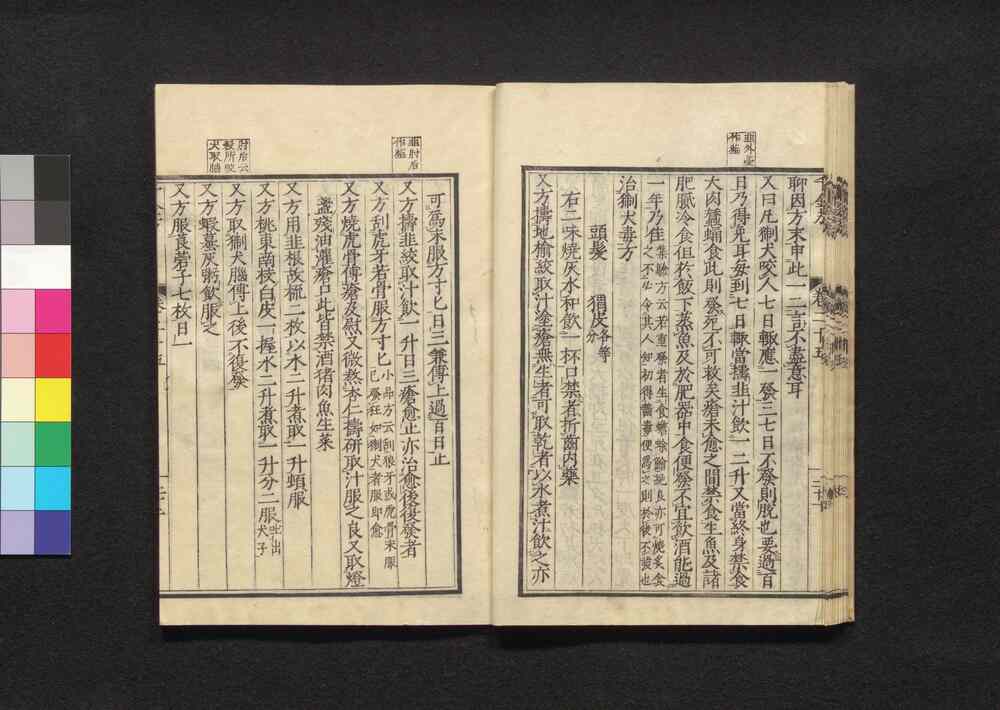 聊因方末申此一二言不盡意耳
又曰凡猘犬咬人七日輒應一發三七日不發則脫也要過百
日乃得免耳每到七日輒當擣韭汁飲一二升又當終身禁食
犬肉蠶蛹食此則發死不可救矣瘡未愈之間禁食生魚及諸
肥膩冷食但於飯下蒸魚及於肥器中食便發不宜飲酒能過
一年乃佳集驗方云若重發者生食
治猘犬毒方
頭髮 猬皮各等分
右二味燒灰水和飲一杯口禁者折齒內藥
又方擣地榆絞取汁塗瘡無生者可取乾者以水煮汁飲之亦
可為末服方寸匕日三兼傅上過百日止
又方擣韭絞取汁飲一升日三瘡愈止亦治愈後復發者
又方刮虎牙若骨服方寸匕小品方云刮狼牙或虎骨末服已發狂如猘犬者服即愈
又方燒虎骨傅瘡及慰又微熬杏仁擣研取汁服之良又取燈
盞殘油灌瘡口此皆禁酒猪肉魚生菜
又方用韭根故梳二枚以水二升煮取一升頓服
又方桃東南枝白皮一握水二升煮取一升分二服吐出犬子
又方取猘犬腦傅上後不復發
又方蝦蟇灰粥飲服之
又方服莨菪子七枚日一
韭外臺作薤
韭肘后作薤
肘后云殺所咬犬取腦